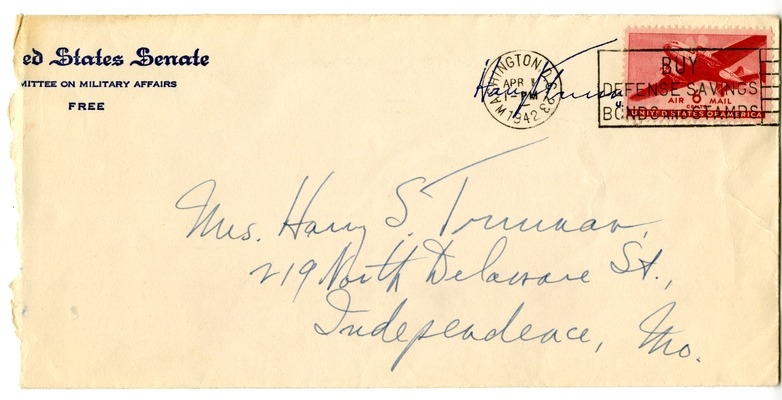 ed States Senate
MITTEE ON MILITARY AFFAIRS
FREE
WASHINGTON, D.C.
APR 1
1942
Harry S. Truman
BUY
DEFENSE SAVINGS
BONDS AND STAMPS
6
CENTS
AIR MAIL
UNITED STATES OF AMERICA
Mrs. Harry S. Truman,
219 North Delaware St.,
Independence, Mo.